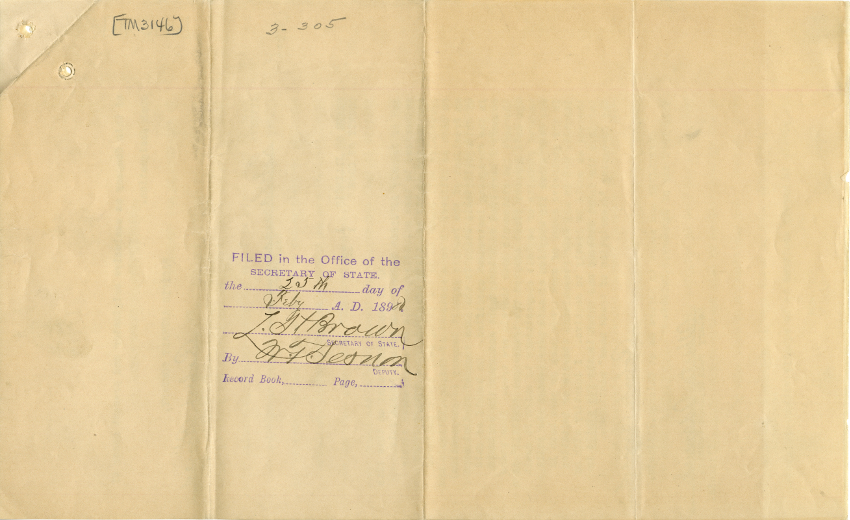 [TM3146]
3-305
FILED in the Office of the
SECRETARY OF STATE.
the 25th day of
Feby A. D. 189
L. H Brown
SECRETARY OF STATE.
By W T Sesnon
DEPUTY.
Record Book, Page,